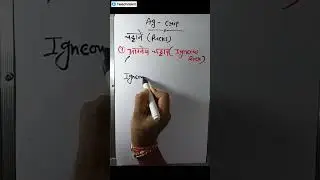 Ag - Cont
चट्टाने (Rocks)
① आग्नेय चट्टान (Igneous
Rock)
Igneou